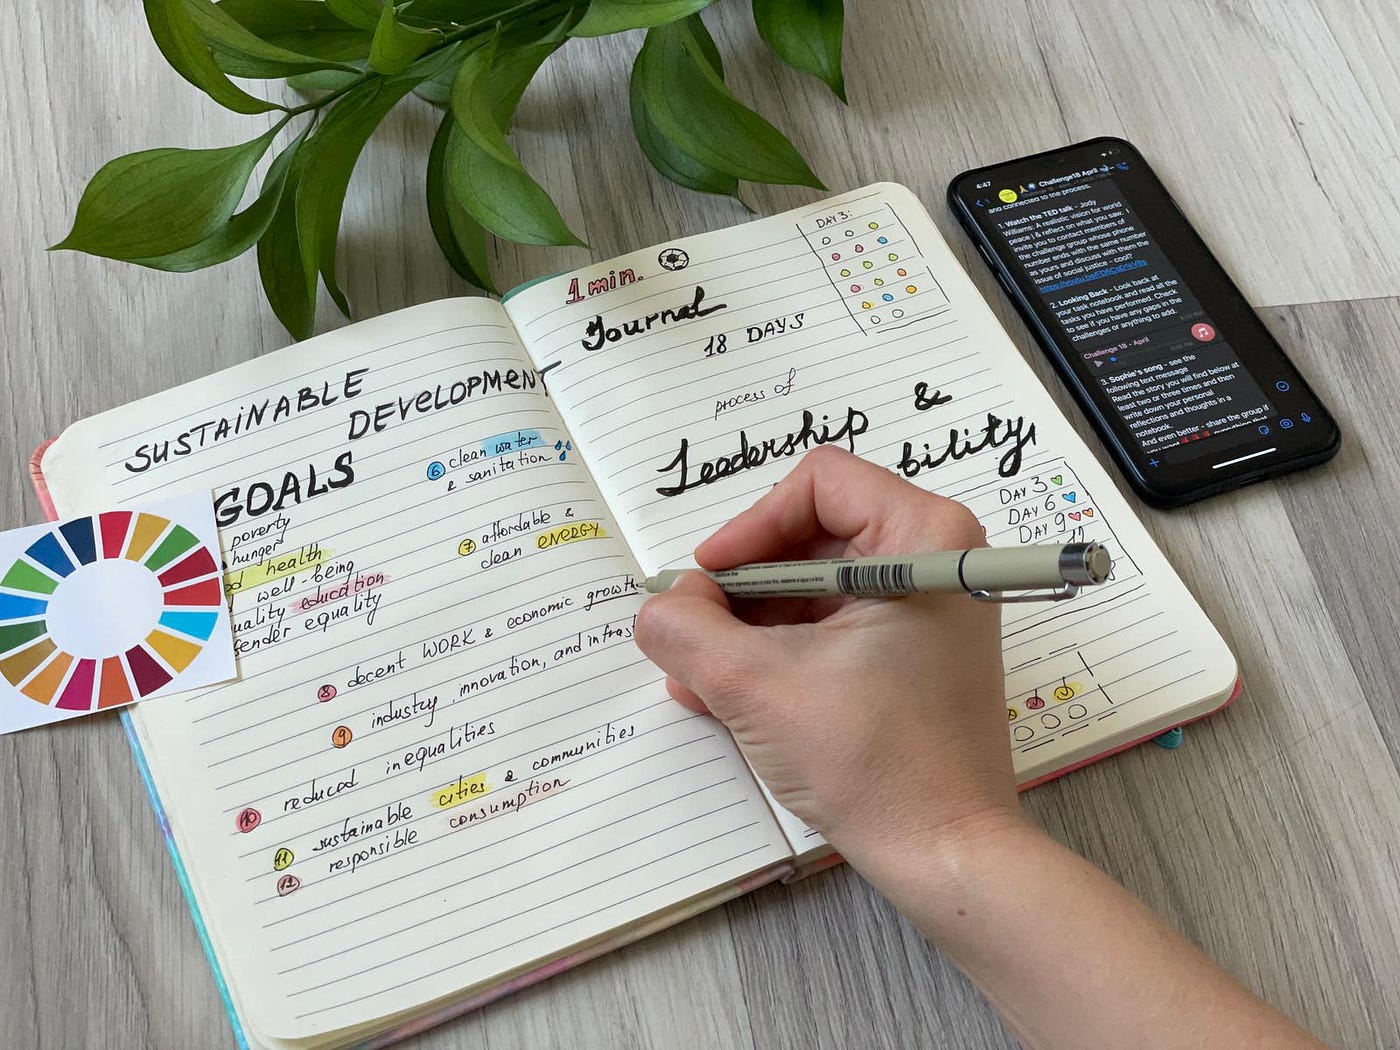 SUSTAINABLE
DEVELOPMENT
GOALS
poverty
hunger
health
well-being
education
gender equality
6 clean water
& sanitation
7 affordable &
clean ENERGY
8 decent WORK & economic growth
9 industry, innovation, and infrast
10 reduced inequalities
11 sustainable cities & communities
12 responsible consumption
1 min.
Journal
18 DAYS
process of
Leadership &
bility
DAY 3:
DAY 3
DAY 6
DAY 9
12
4:47
Challenge18 April
and connected to the process.
1. Watch the TED talk - Jody
Williams: A realistic vision for world
peace \ & reflect on what you saw. I
invite you to contact members of
the challenge group whose phone
number ends with the same number
as yours and discuss with them the
issue of social justice - cool?
2. Looking Back - Look back at
your task notebook and read all the
tasks you have performed. Check
to see if you have any gaps in the
challenges or anything to add.
Challenge 18 - April
3. Sophie's song - see the
following text message
Read the story you will find below at
least two or three times and then
write down your personal
reflections and thoughts in a
notebook.
And even better - share the group if